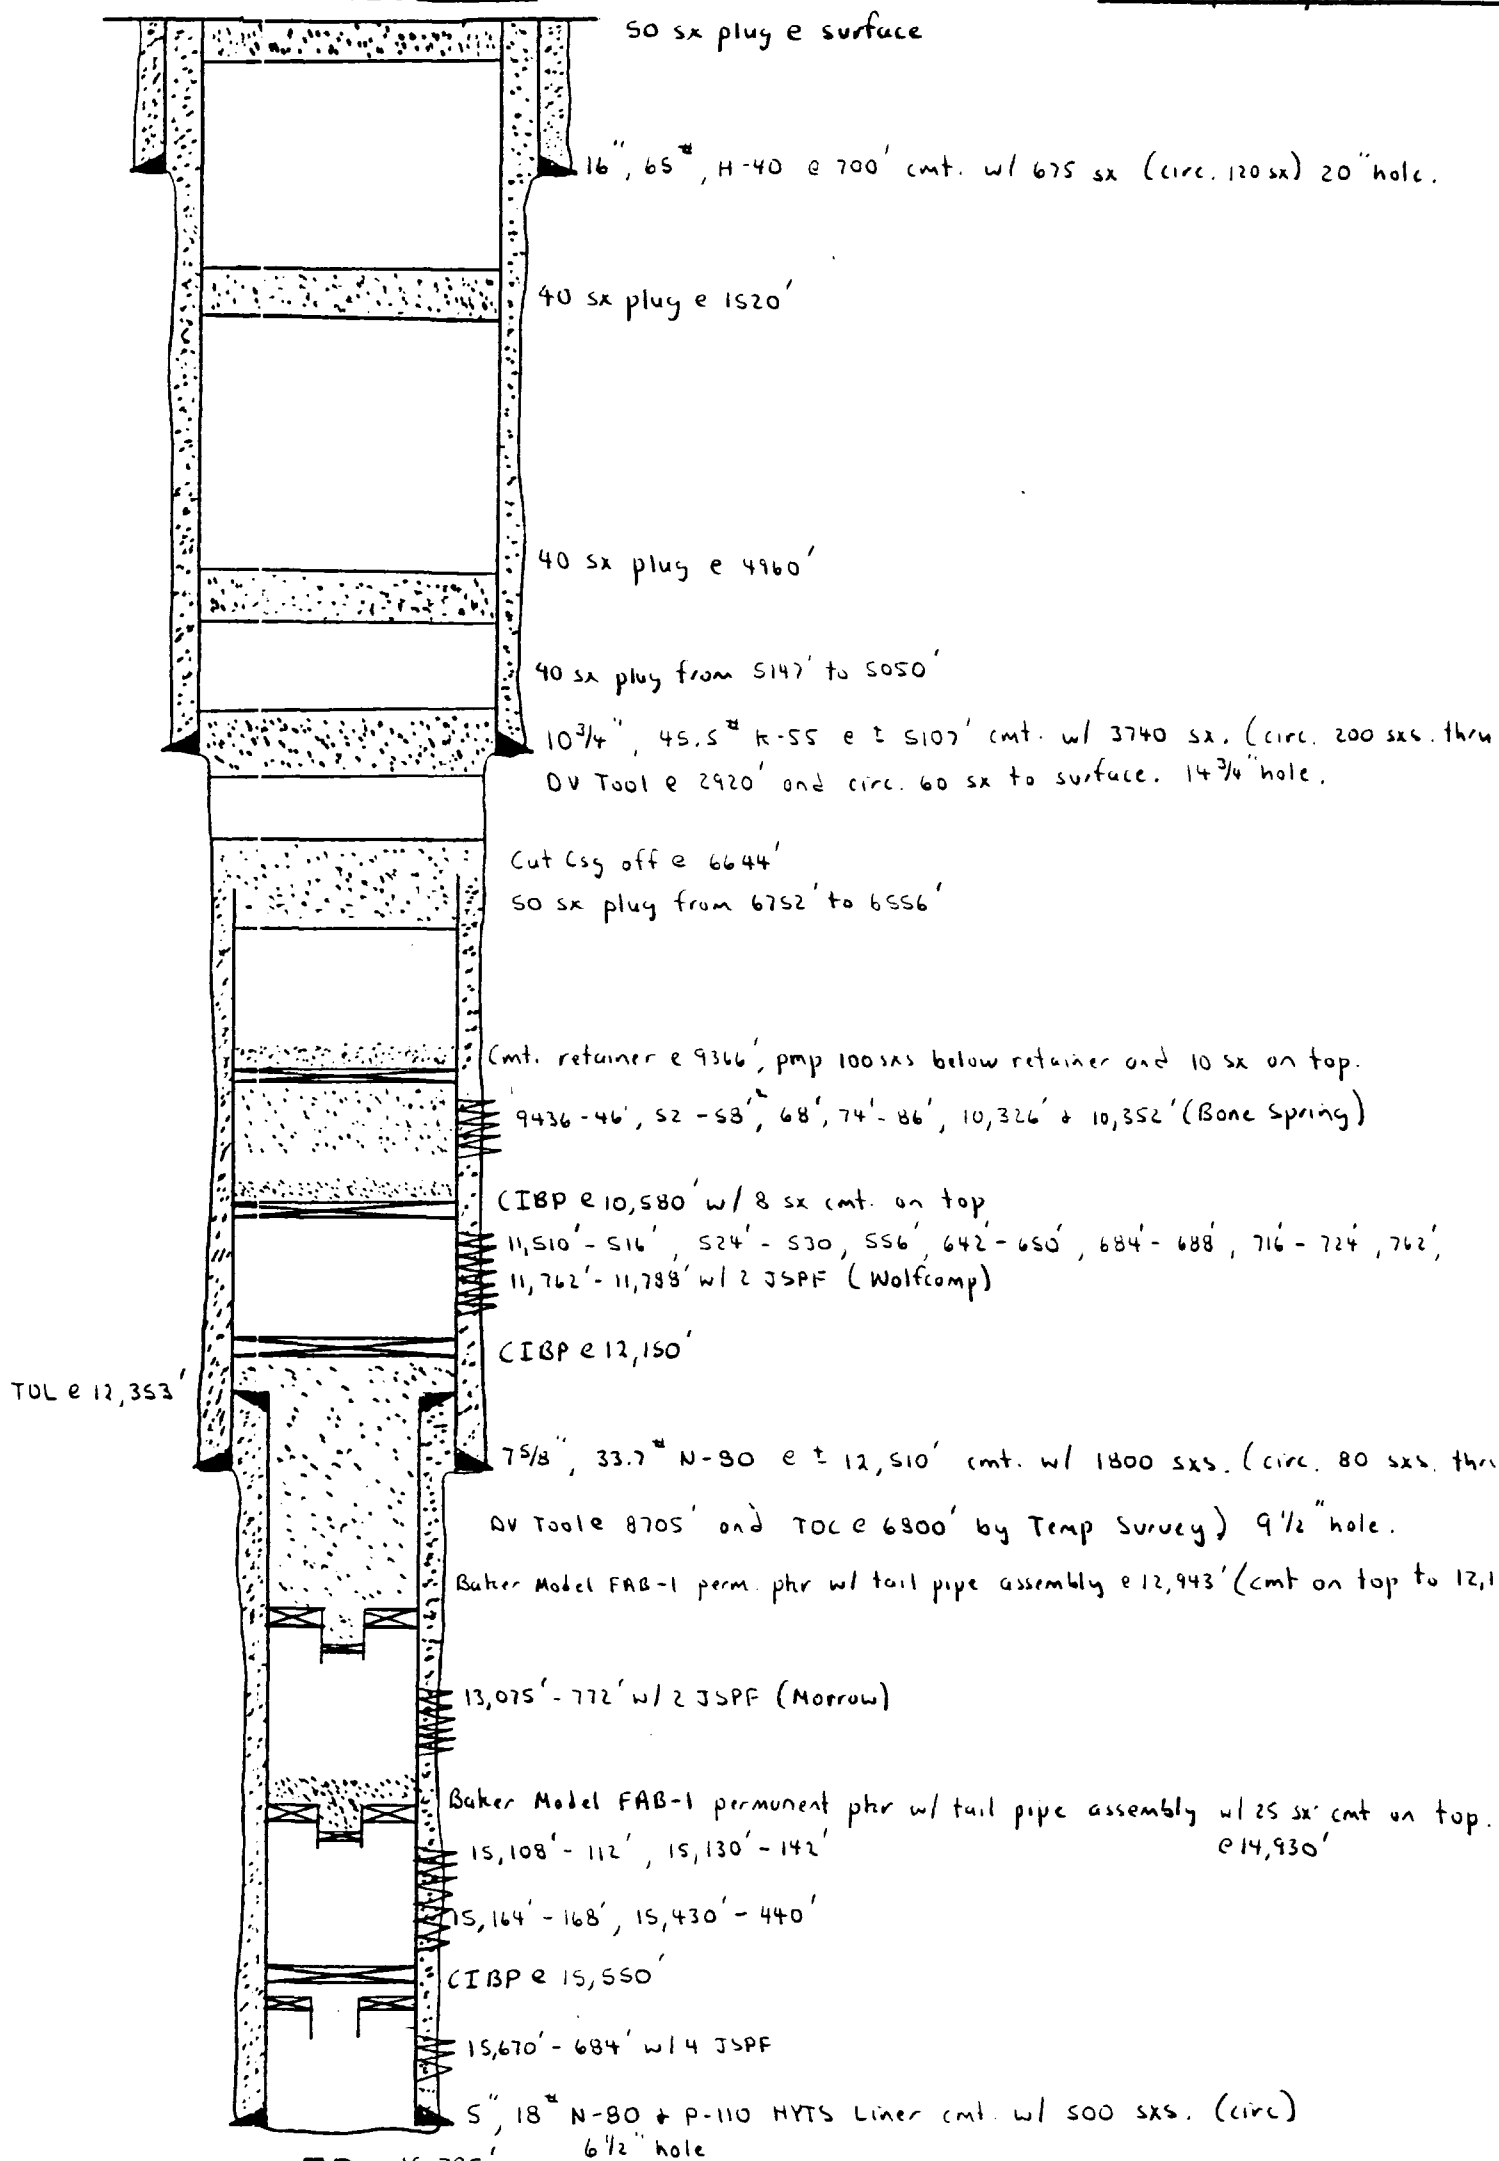 50 sx plug @ surface
16", 65#, H-40 @ 700' cmt. w/ 675 sx (circ. 120 sx) 20" hole.
40 sx plug @ 1520'
40 sx plug @ 4960'
40 sx plug from 5147' to 5050'
10 3/4", 45.5# K-55 @ ± 5107' cmt. w/ 3740 sx. (circ. 200 sxs. thru
DV Tool @ 2920' and circ. 60 sx to surface. 14 3/4" hole.
Cut Csg off @ 6644'
50 sx plug from 6752' to 6556'
Cmt. retainer @ 9366', pmp 100 sxs below retainer and 10 sx on top.
9436-46', 52-58', 68', 74'-86', 10,326' & 10,352' (Bone Spring)
CIBP @ 10,580' w/ 8 sx cmt. on top
11,510'-516', 524'-530, 556', 642'-650', 684'-688', 716-724', 762',
11,762'-11,788' w/ 2 JSPF (Wolfcamp)
CIBP @ 12,150'
TOL @ 12,353'
7 5/8", 33.7# N-80 @ ± 12,510' cmt. w/ 1800 sxs. (circ. 80 sxs.
DV Tool @ 8705' and TOC @ 6800' by Temp Survey) 9 1/2" hole.
Baker Model FAB-1 perm. pkr w/ tail pipe assembly @ 12,943' (cmt on top to
13,075'-772' w/ 2 JSPF (Morrow)
Baker Model FAB-1 permanent pkr w/ tail pipe assembly w/ 25 sx cmt on top.
@ 14,930'
15,108'-112', 15,130'-142'
15,164'-168', 15,430'-440'
CIBP @ 15,550'
15,670'-684' w/ 4 JSPF
5", 18# N-80 & P-110 HYTS Liner cmt. w/ 500 sxs. (circ)
6 1/2" hole